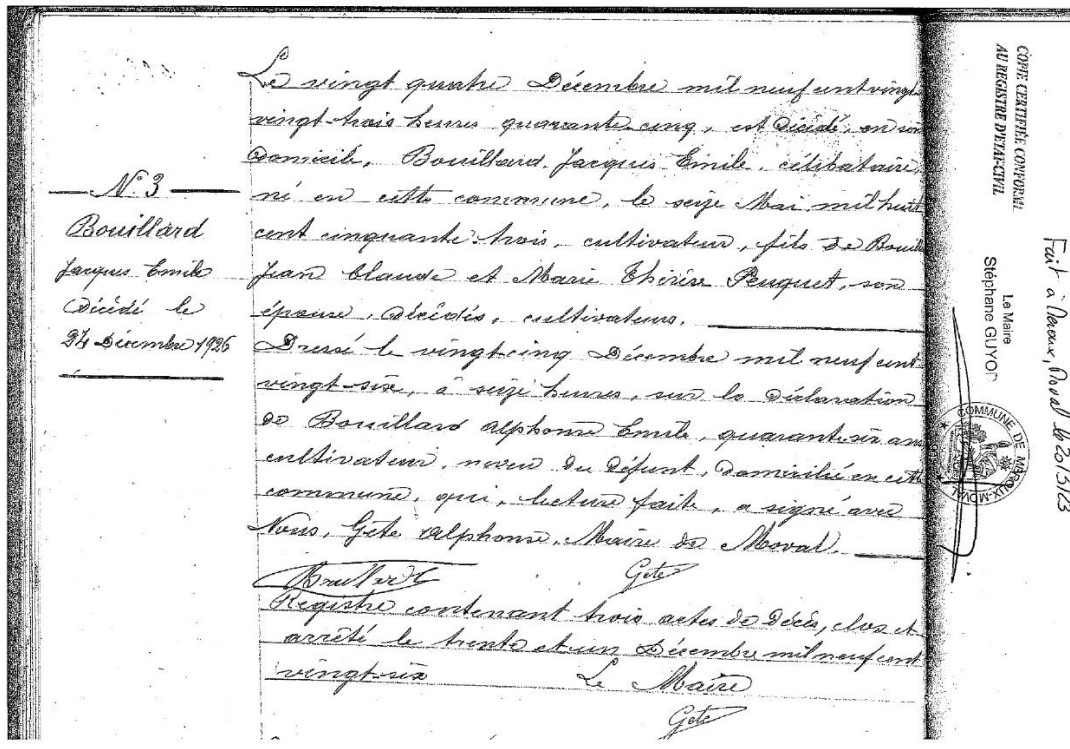 N° 3
Bouillard
Jacques Emile
Décédé le
24 Décembre 1926
Le vingt quatre Décembre mil neuf cent vingt
vingt-trois heures quarante cinq, est décédé, en son
domicile, Bouillard, Jacques Emile, célibataire,
né en cette commune, le seize Mai mil huit
cent cinquante-trois, cultivateur, fils de Bouill
Jean Claude et Marie Thérèse Peuquet, son
épouse, décédés, cultivateurs.
Dressé le vingt-cinq Décembre mil neuf cent
vingt-six, à seize heures, sur la déclaration
de Bouillard Alphonse Emile, quarante-six ans
cultivateur, neveu du défunt, domicilié en cette
commune, qui, lecture faite, a signé avec
Nous, Gète Alphonse, Maire de Moval.
Bouillard Gète
Registre contenant trois actes de Décès, clos et
arrêté le trente et un Décembre mil neuf cent
vingt-six Le Maire
Gète
COPIE CERTIFIÉE CONFORME
AU REGISTRE D'ETAT-CIVIL
Le Maire
Stéphane GUYOD
Fait à Meroux Moval le 20/3/23
COMMUNE DE MEROUX-MOVAL